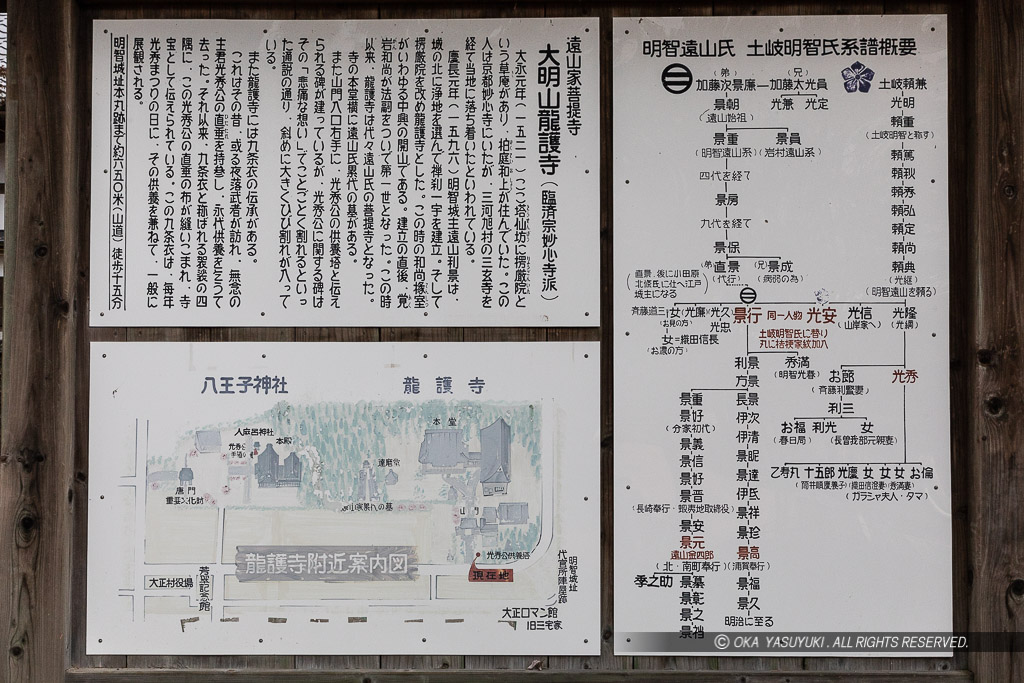 遠山家菩提寺
大明山龍護寺（臨済宗妙心寺派）
大永元年（一五二一）ここ塔仙坊に楞厳院と
いう草庵があり、柏庭和上が住んでいた。この
人は京都妙心寺にいたが、三河旭村の三玄寺を
経て当地に落ち着いたといわれている。
慶長元年（一五九六）明智城主遠山利景は、
城の北に浄地を選んで禅刹一宇を建立。そして
楞厳院を改め龍護寺とした。この時の和尚椽室
がいわゆる中興の開山である。建立の直後、覚
岩和尚が法嗣をついで第一世となった。この時
以来、龍護寺は代々遠山氏の菩提寺となった。
寺の本堂横に遠山氏累代の墓がある。
また山門入口右手に、光秀公の供養塔と伝え
られる碑が建っているが、光秀公に関する碑は
その、「悲痛な想い」でことごとく割れるといっ
た通説の通り、斜めに大きくひび割れが入って
いる。
また龍護寺には九条衣の伝承がある。
これはその昔、或る夜落武者が訪れ、無念の
主君光秀公の直垂を持参し、永代供養を乞うて
去った。それ以来、九条衣と称ばれる袈裟の四
隅に、この光秀公の直垂の布が縫いこまれ、寺
宝として伝えられている。この九条衣は、毎年
光秀まつりの日に、その供養を兼ねて、一般に
展観される。
明智城址本丸跡まで約六五〇米（山道）徒歩十五分
八王子神社
龍護寺
人麻呂神社
本殿
本堂
達磨堂
唐門
山門
光秀公供養塔
現在地
龍護寺附近案内図
大正村役場
芳翠記念館
代官所陣屋跡
明智城址
大正ロマン館
旧三宅家
明智遠山氏 土岐明智氏系譜概要
（弟）
加藤次景廉
（兄）
加藤太光員
土岐頼兼
景朝
（遠山始祖）
光兼 光定
光明
頼重
（土岐明智と称す）
景重
（明智遠山系）
景員
（岩村遠山系）
頼篤
頼秋
頼秀
頼弘
頼定
頼尚
頼典
（光継）
（明智遠山を頼る）
四代を経て
景房
九代を経て
景保
（弟）
直景
（代行）
（兄）
景成
（病弱の為）
（直景、後に小田原
北條氏に仕へ江戸
城主になる）
斉藤道三
女
（お見の方）
（光廉）
光久
光忠
景行
同一人物
光安
光信
（山岸家へ）
光隆
（光綱）
女＝織田信長
（お濃の方）
土岐明智氏に替り
丸に桔梗家紋加入
利景
秀満
（明智光春）
お郎
（斉藤利賢妻）
光秀
方景
利三
お福
（春日局）
利光
女
（長曽我部元親妻）
長景
伊次
伊清
景昵
景達
伊氐
景祥
景珍
景高
（浦賀奉行）
景福
景久
明治に至る
景重
景好
（分家初代）
景義
景信
景好
景晋
（長崎奉行・蝦夷地取締役）
景安
景元
遠山金四郎
（北・南町奉行）
季之助
景纂
景彰
景之
乙寿丸
十五郎
（筒井順慶養子）
光慶
女
（織田信澄妻）
女
（秀満妻）
女
お倫
（ガラシャ夫人・タマ）
© OKA YASUYUKI. ALL RIGHTS RESERVED.